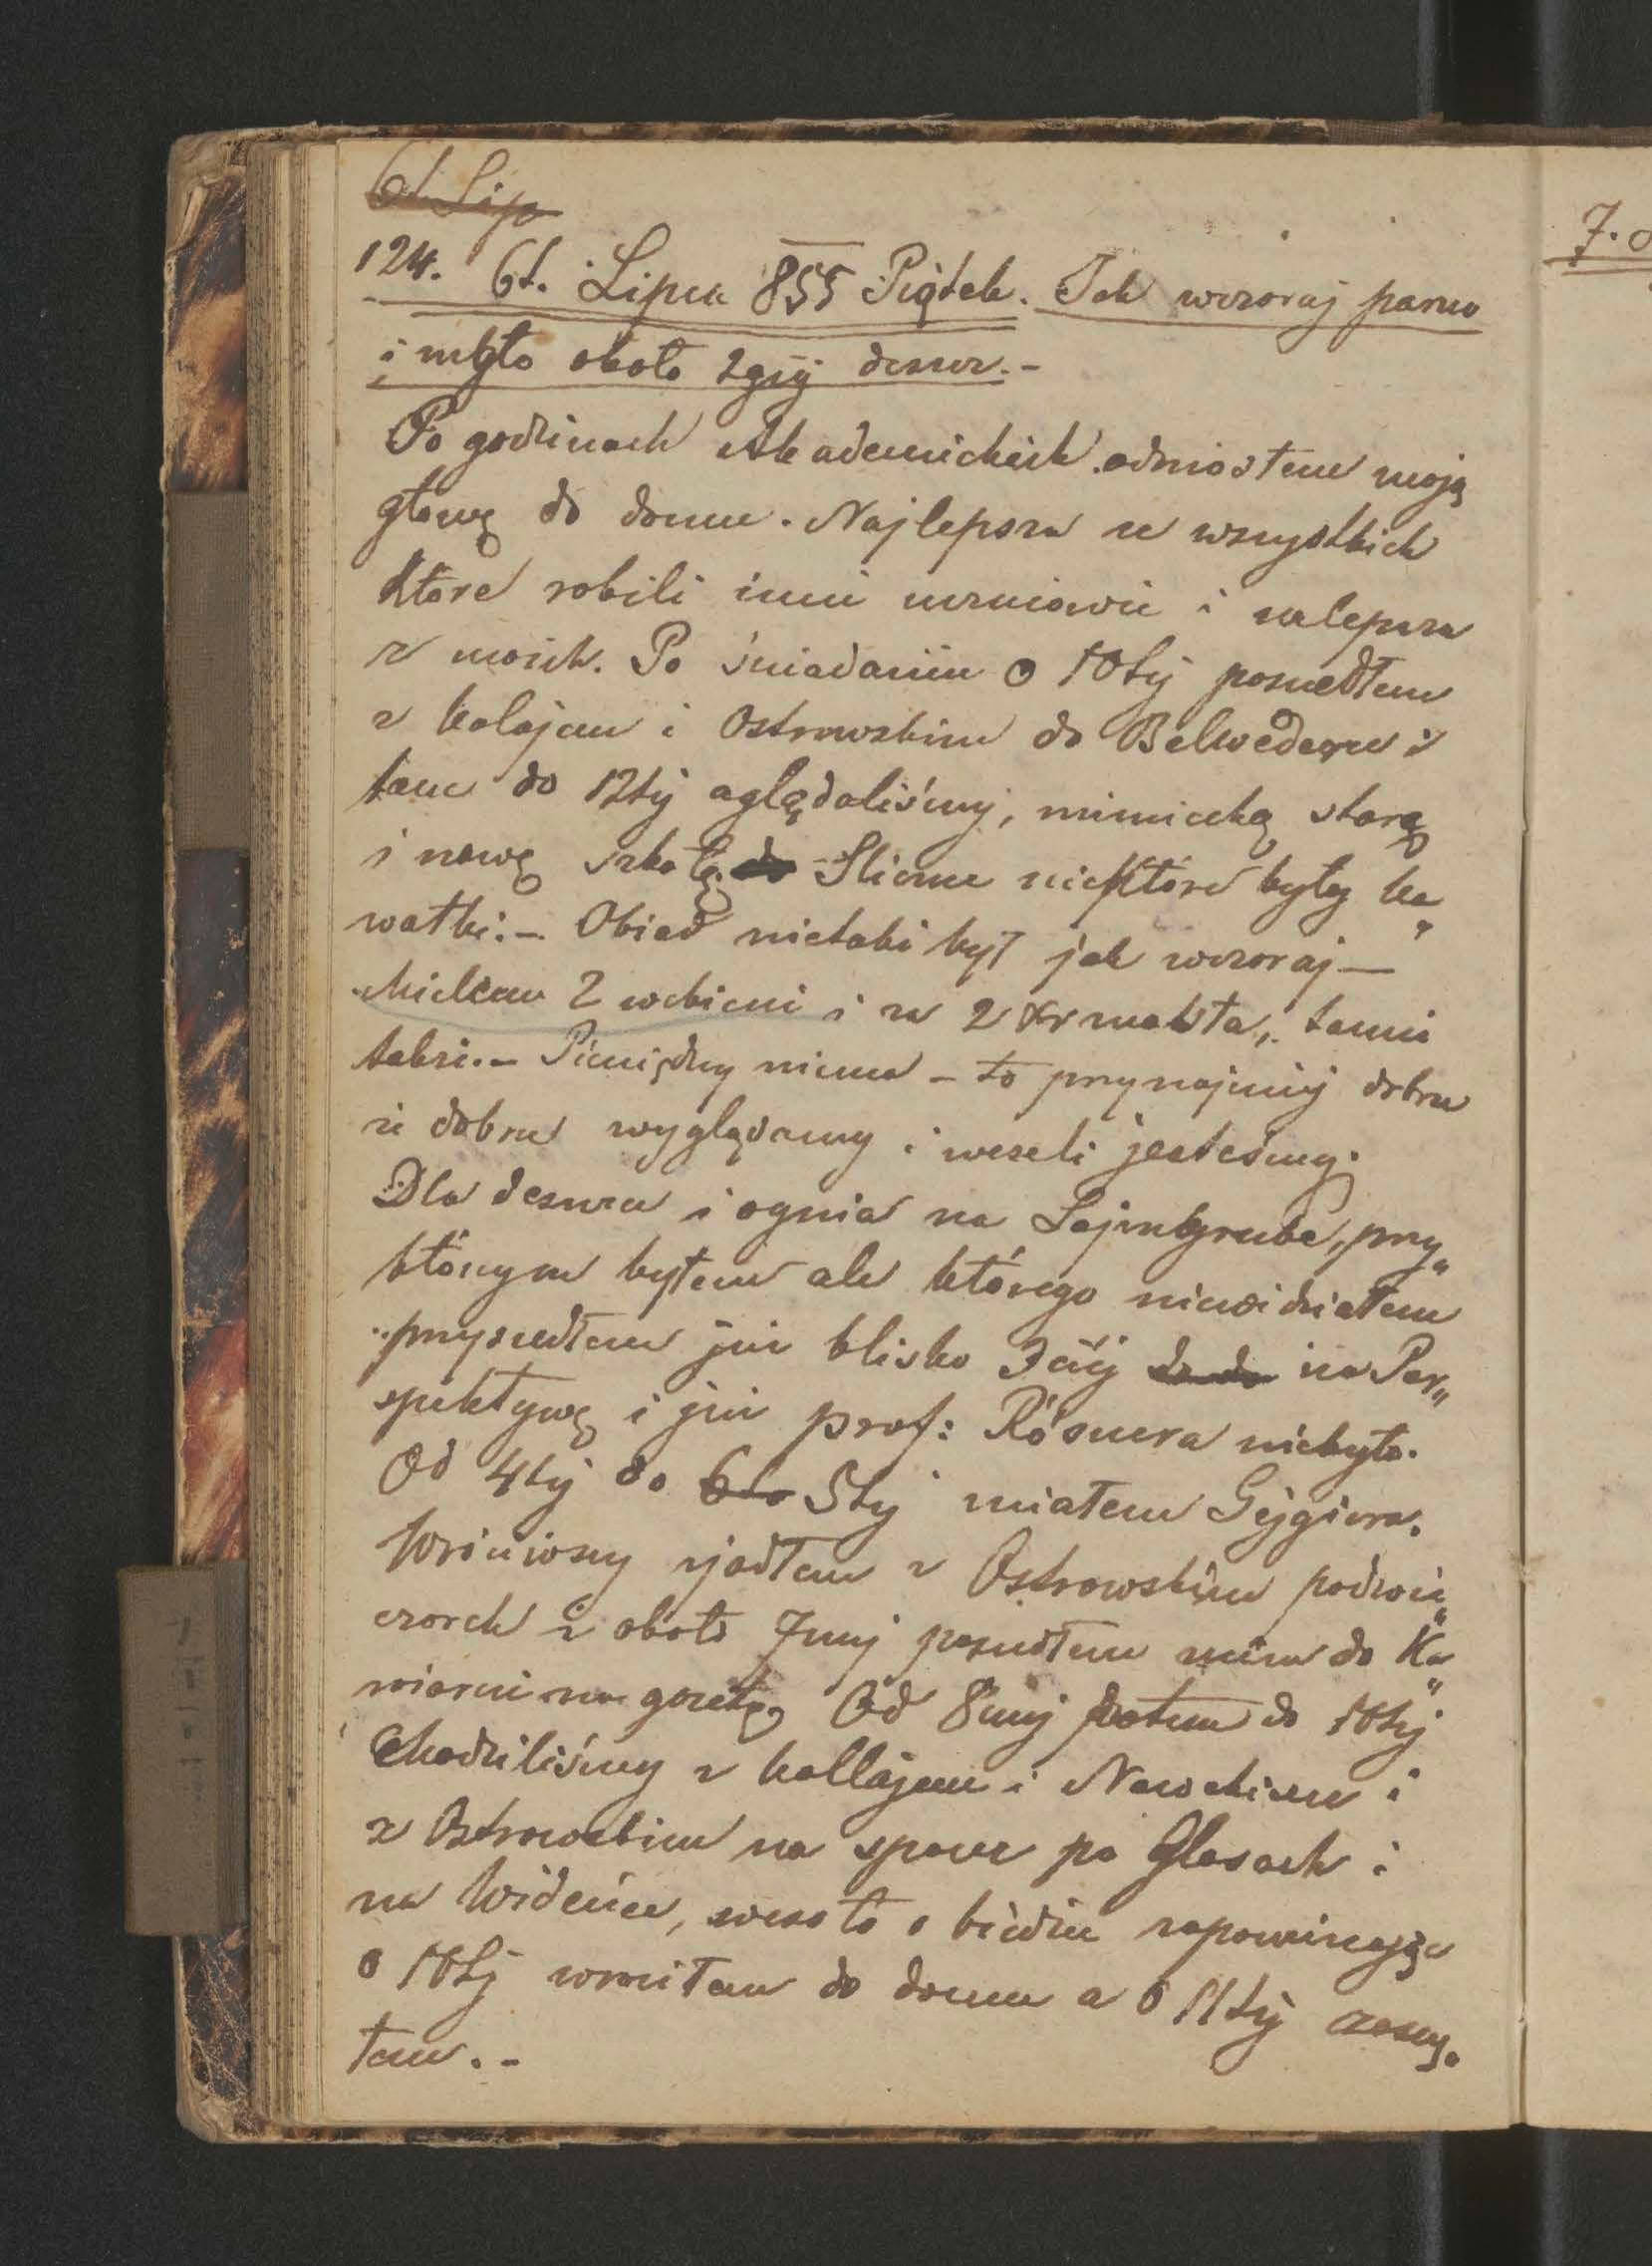 6t. Lip
124. 6t. Lipca 855 Piątek. Jak wczoraj parno
i mgło około 2gij deszcz.-
Po godzinach Akademickich odniosłem moją
głowę do domu. Najlepsza ze wszystkich
które robili inni uczniowie i nalepsza
z moich. Po śniadaniu o 10tij poszedłem
z Kolajem i Ostrowskim do Belwederu i
tam do 12tij oglądaliśmy, nimiecką starą
i nową szkołę. Sliczne niektóre były ka„
wałki.- Obiad nietaki był jak wczoraj—
Mielem 2 wekieni i za 2 Xr masła,
także.- Piniędzy niema - to przynajmnij dobrze
że dobrze wyglądamy i weseli jesteśmy.
Dla deszczu i ognia na Lajmbgrube, przy„
którym byłem ale którego niewidziałem
przyszedłem już blisko 3cij na Per„
spektywę i już prof: Rösnera niebyło.
Od 4tij do 6to 5tij miałem Gejgiera.
Wróciwszy zjadłem z Ostrowskim podwie„
czorek i około 7mij poszedłem znim do Ka„
wiarni na gazetę. Od 8mij potem do 10tij
Chodziliśmy z Kollajem i Nowakiem i
z Ostrowskim na spacer po Glasach i
na Widence, wesoło o biedzie zapominając
o 10tij wróciłem do domu a o 11tij zasną„
łem.-